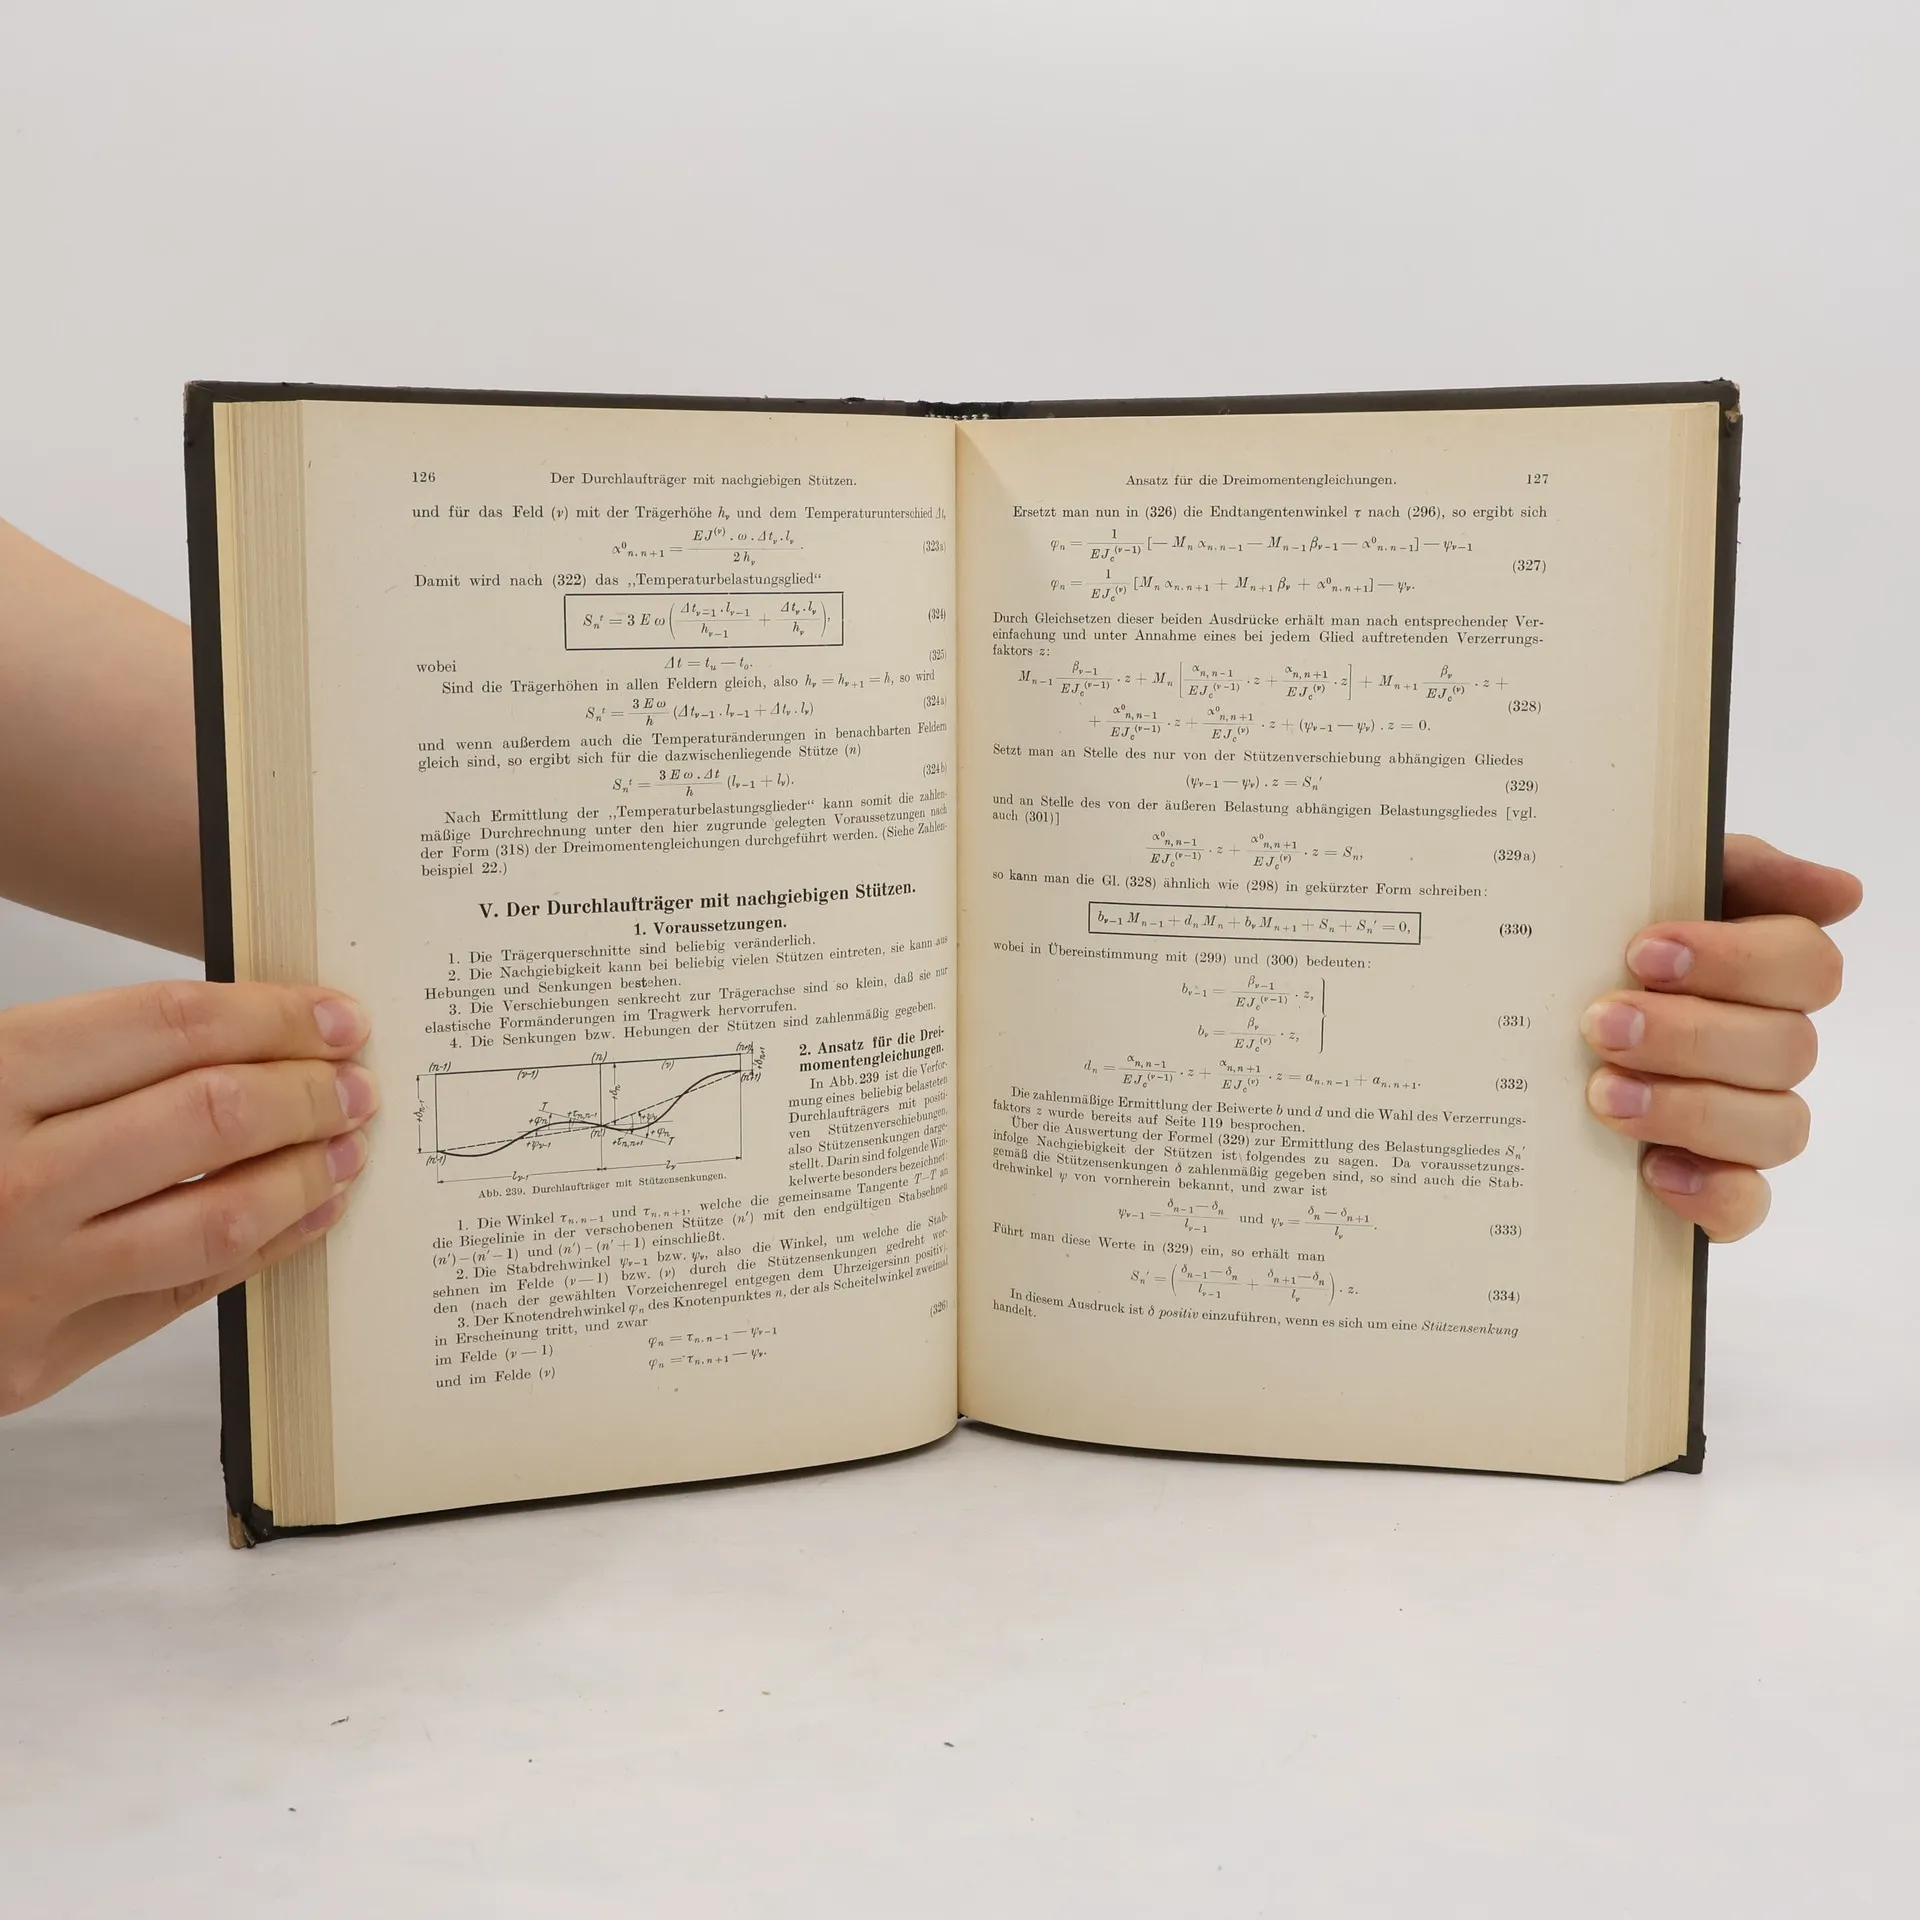 126
Der Durchlaufträger mit nachgiebigen Stützen.
und für das Feld (ν) mit der Trägerhöhe hᵥ und dem Temperaturunterschied Δtᵥ
α⁰ₙ,ₙ₊₁ = EJ⁽ᵛ⁾ . ω . Δtᵥ . lᵥ / 2 hᵥ . (323a)
Damit wird nach (322) das „Temperaturbelastungsglied“
Sₙᵗ = 3 E ω (Δtᵥ₌₁ . lᵥ₋₁ / hᵥ₋₁ + Δtᵥ . lᵥ / hᵥ), (324)
wobei Δt = tᵤ — tₒ. (325)
Sind die Trägerhöhen in allen Feldern gleich, also hᵥ = hᵥ₊₁ = h, so wird
Sₙᵗ = 3 E ω / h (Δtᵥ₋₁ . lᵥ₋₁ + Δtᵥ . lᵥ) (324a)
und wenn außerdem auch die Temperaturänderungen in benachbarten Feldern
gleich sind, so ergibt sich für die dazwischenliegende Stütze (n)
Sₙᵗ = 3 E ω . Δt / h (lᵥ₋₁ + lᵥ). (324b)
Nach Ermittlung der „Temperaturbelastungsglieder“ kann somit die zahlen-
mäßige Durchrechnung unter den hier zugrunde gelegten Voraussetzungen nach
der Form (318) der Dreimomentengleichungen durchgeführt werden. (Siehe Zahlen-
beispiel 22.)
V. Der Durchlaufträger mit nachgiebigen Stützen.
1. Voraussetzungen.
1. Die Trägerquerschnitte sind beliebig veränderlich.
2. Die Nachgiebigkeit kann bei beliebig vielen Stützen eintreten, sie kann aus
Hebungen und Senkungen bestehen.
3. Die Verschiebungen senkrecht zur Trägerachse sind so klein, daß sie nur
elastische Formänderungen im Tragwerk hervorrufen.
4. Die Senkungen bzw. Hebungen der Stützen sind zahlenmäßig gegeben.
(n-1) (ν-1) (n) (ν) (n+1)
+δₙ₋₁ +δₙ +δₙ₊₁
T +φₙ +τₙ,ₙ₋₁ +ψᵥ
+ψᵥ₋₁ (n') +τₙ,ₙ₊₁ +φₙ T
(n'-1) (n'+1)
lᵥ₋₁ lᵥ
Abb. 239. Durchlaufträger mit Stützensenkungen.
2. Ansatz für die Drei-
momentengleichungen.
In Abb. 239 ist die Verfor-
mung eines beliebig belasteten
Durchlaufträgers mit positi-
ven Stützenverschiebungen,
also Stützensenkungen darge-
stellt. Darin sind folgende Win-
kelwerte besonders bezeichnet:
1. Die Winkel τₙ,ₙ₋₁ und τₙ,ₙ₊₁, welche die gemeinsame Tangente T—T an
die Biegelinie in der verschobenen Stütze (n') mit den endgültigen Stabsehnen
(n') — (n' — 1) und (n') — (n' + 1) einschließt.
2. Die Stabdrehwinkel ψᵥ₋₁ bzw. ψᵥ, also die Winkel, um welche die Stab-
sehnen im Felde (ν — 1) bzw. (ν) durch die Stützensenkungen gedreht wer-
den (nach der gewählten Vorzeichenregel entgegen dem Uhrzeigersinn positiv).
3. Der Knotendrehwinkel φₙ des Knotenpunktes n, der als Scheitelwinkel zweimal
in Erscheinung tritt, und zwar
im Felde (ν — 1) φₙ = τₙ,ₙ₋₁ — ψᵥ₋₁ (326)
und im Felde (ν) φₙ = τₙ,ₙ₊₁ — ψᵥ.
Ansatz für die Dreimomentengleichungen.
127
Ersetzt man nun in (326) die Endtangentenwinkel τ nach (296), so ergibt sich
φₙ = 1 / EJ_c⁽ᵛ⁻¹⁾ [— Mₙ αₙ,ₙ₋₁ — Mₙ₋₁ βᵥ₋₁ — α⁰ₙ,ₙ₋₁] — ψᵥ₋₁
(327)
φₙ = 1 / EJ_c⁽ᵛ⁾ [Mₙ αₙ,ₙ₊₁ + Mₙ₊₁ βᵥ + α⁰ₙ,ₙ₊₁] — ψᵥ.
Durch Gleichsetzen dieser beiden Ausdrücke erhält man nach entsprechender Ver-
einfachung und unter Annahme eines bei jedem Glied auftretenden Verzerrungs-
faktors z:
Mₙ₋₁ βᵥ₋₁ / EJ_c⁽ᵛ⁻¹⁾ . z + Mₙ [αₙ,ₙ₋₁ / EJ_c⁽ᵛ⁻¹⁾ . z + αₙ,ₙ₊₁ / EJ_c⁽ᵛ⁾ . z] + Mₙ₊₁ βᵥ / EJ_c⁽ᵛ⁾ . z +
(328)
+ α⁰ₙ,ₙ₋₁ / EJ_c⁽ᵛ⁻¹⁾ . z + α⁰ₙ,ₙ₊₁ / EJ_c⁽ᵛ⁾ . z + (ψᵥ₋₁ — ψᵥ) . z = 0.
Setzt man an Stelle des nur von der Stützenverschiebung abhängigen Gliedes
(ψᵥ₋₁ — ψᵥ) . z = Sₙ' (329)
und an Stelle des von der äußeren Belastung abhängigen Belastungsgliedes [vgl.
auch (301)]
α⁰ₙ,ₙ₋₁ / EJ_c⁽ᵛ⁻¹⁾ . z + α⁰ₙ,ₙ₊₁ / EJ_c⁽ᵛ⁾ . z = Sₙ, (329a)
so kann man die Gl. (328) ähnlich wie (298) in gekürzter Form schreiben:
bᵥ₋₁ Mₙ₋₁ + dₙ Mₙ + bᵥ Mₙ₊₁ + Sₙ + Sₙ' = 0, (330)
wobei in Übereinstimmung mit (299) und (300) bedeuten:
bᵥ₋₁ = βᵥ₋₁ / EJ_c⁽ᵛ⁻¹⁾ . z,
(331)
bᵥ = βᵥ / EJ_c⁽ᵛ⁾ . z,
dₙ = αₙ,ₙ₋₁ / EJ_c⁽ᵛ⁻¹⁾ . z + αₙ,ₙ₊₁ / EJ_c⁽ᵛ⁾ . z = aₙ,ₙ₋₁ + aₙ,ₙ₊₁. (332)
Die zahlenmäßige Ermittlung der Beiwerte b und d und die Wahl des Verzerrungs-
faktors z wurde bereits auf Seite 119 besprochen.
Über die Auswertung der Formel (329) zur Ermittlung des Belastungsgliedes Sₙ'
infolge Nachgiebigkeit der Stützen ist folgendes zu sagen. Da voraussetzungs-
gemäß die Stützensenkungen δ zahlenmäßig gegeben sind, so sind auch die Stab-
drehwinkel ψ von vornherein bekannt, und zwar ist
ψᵥ₋₁ = δₙ₋₁ — δₙ / lᵥ₋₁ und ψᵥ = δₙ — δₙ₊₁ / lᵥ. (333)
Führt man diese Werte in (329) ein, so erhält man
Sₙ' = (δₙ₋₁ — δₙ / lᵥ₋₁ + δₙ₊₁ — δₙ / lᵥ) . z. (334)
In diesem Ausdruck ist δ positiv einzuführen, wenn es sich um eine Stützensenkung
handelt.